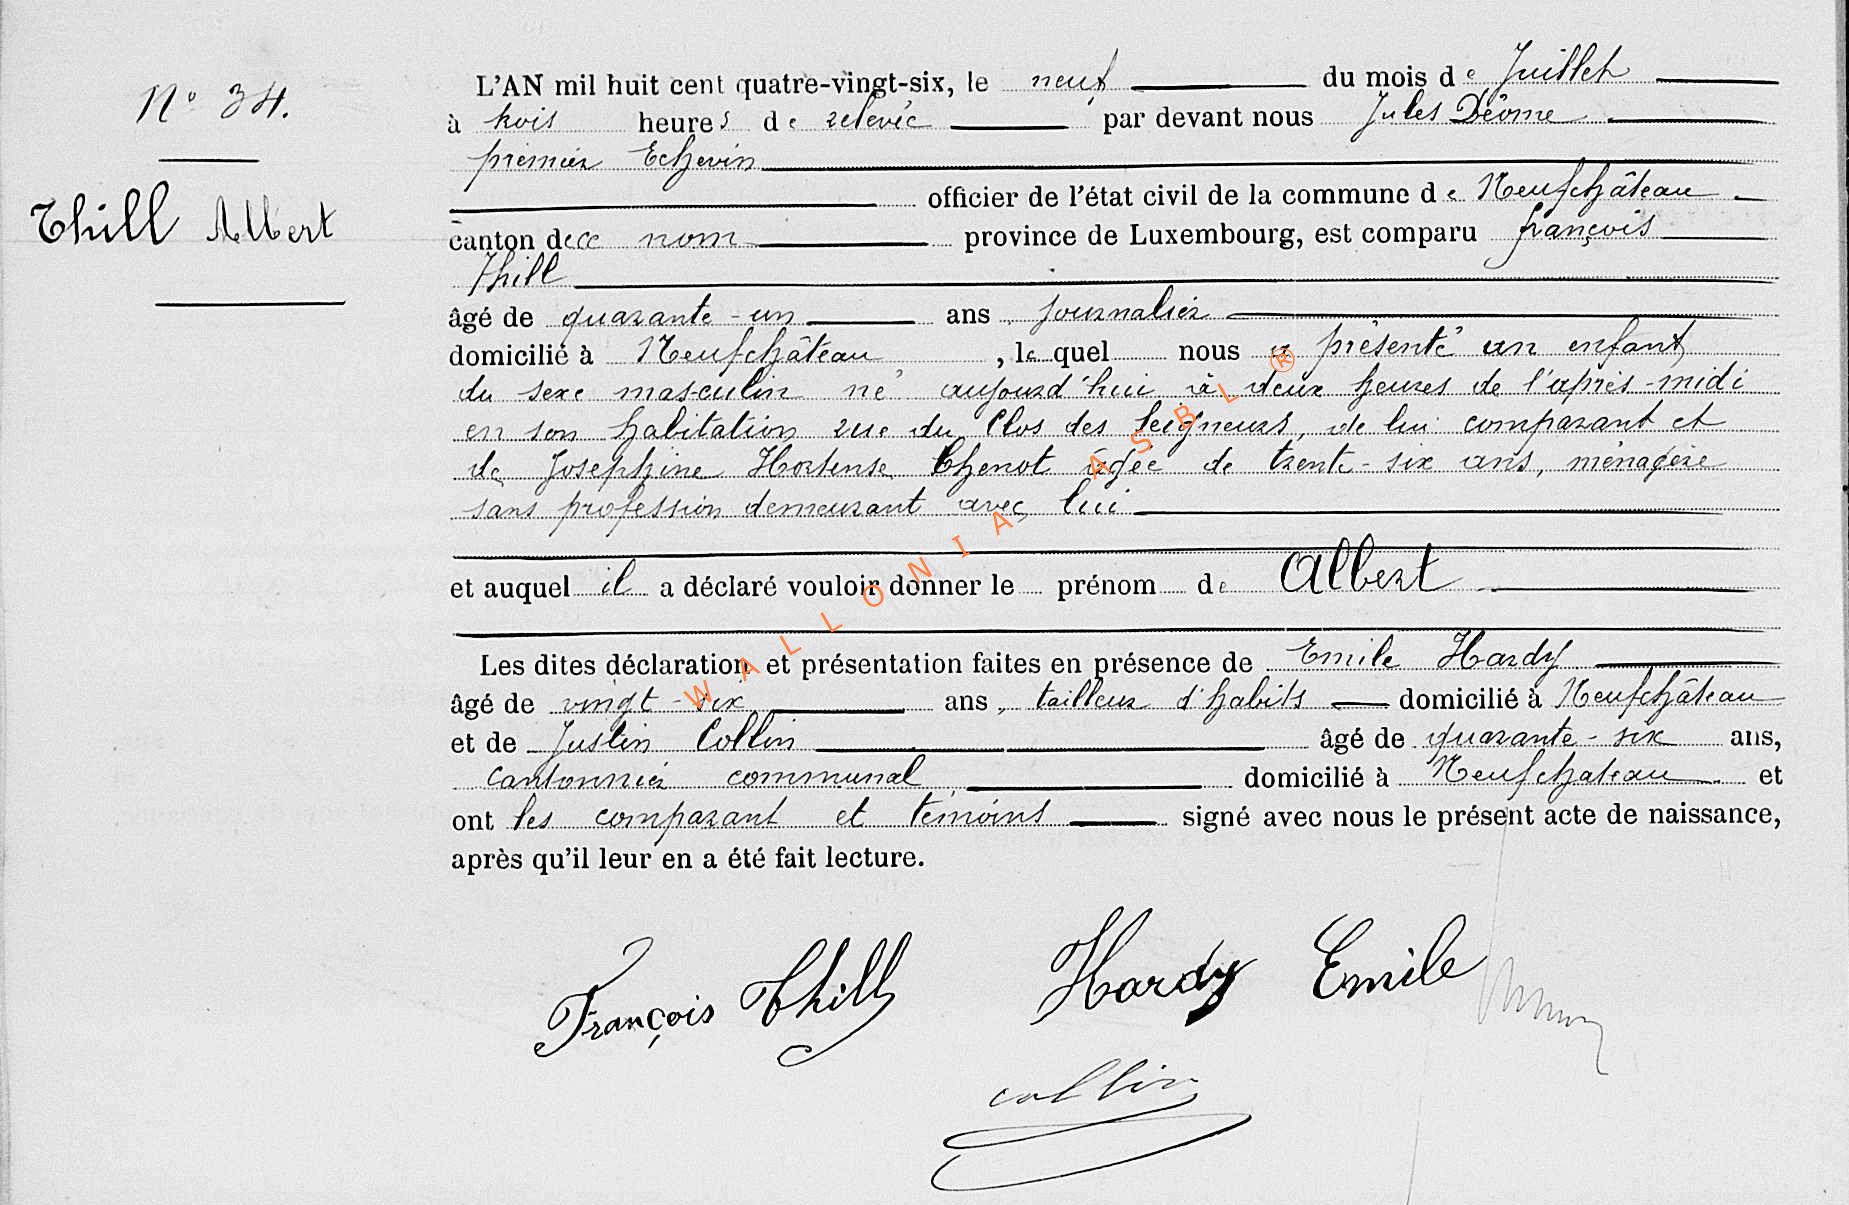 N° 34.
Thill Albert
L'AN mil huit cent quatre-vingt-six, le neuf du mois de Juillet
à trois heures de relevée par devant nous Jules Déome
premier Echevin
officier de l'état civil de la commune de Neufchâteau
canton de ce nom province de Luxembourg, est comparu françois
Thill
âgé de quarante-un ans, journalier
domicilié à Neufchâteau, lequel nous a présenté un enfant
du sexe masculin né aujourd'hui à deux heures de l'après-midi
en son habitation rue du Clos des Seigneurs, de lui comparant et
de Josephine Hortense Chenot âgée de trente-six ans, ménagère
sans profession demeurant avec lui
et auquel il a déclaré vouloir donner le prénom de Albert
Les dites déclaration et présentation faites en présence de Emile Hardy
âgé de vingt-six ans, tailleur d'habits domicilié à Neufchâteau
et de Justin Collin âgé de quarante-six ans,
cantonnier communal, domicilié à Neufchateau et
ont les comparant et témoins signé avec nous le présent acte de naissance,
après qu'il leur en a été fait lecture.
François Thill Hardy Emile
collin
WALLONIA ASBL ®